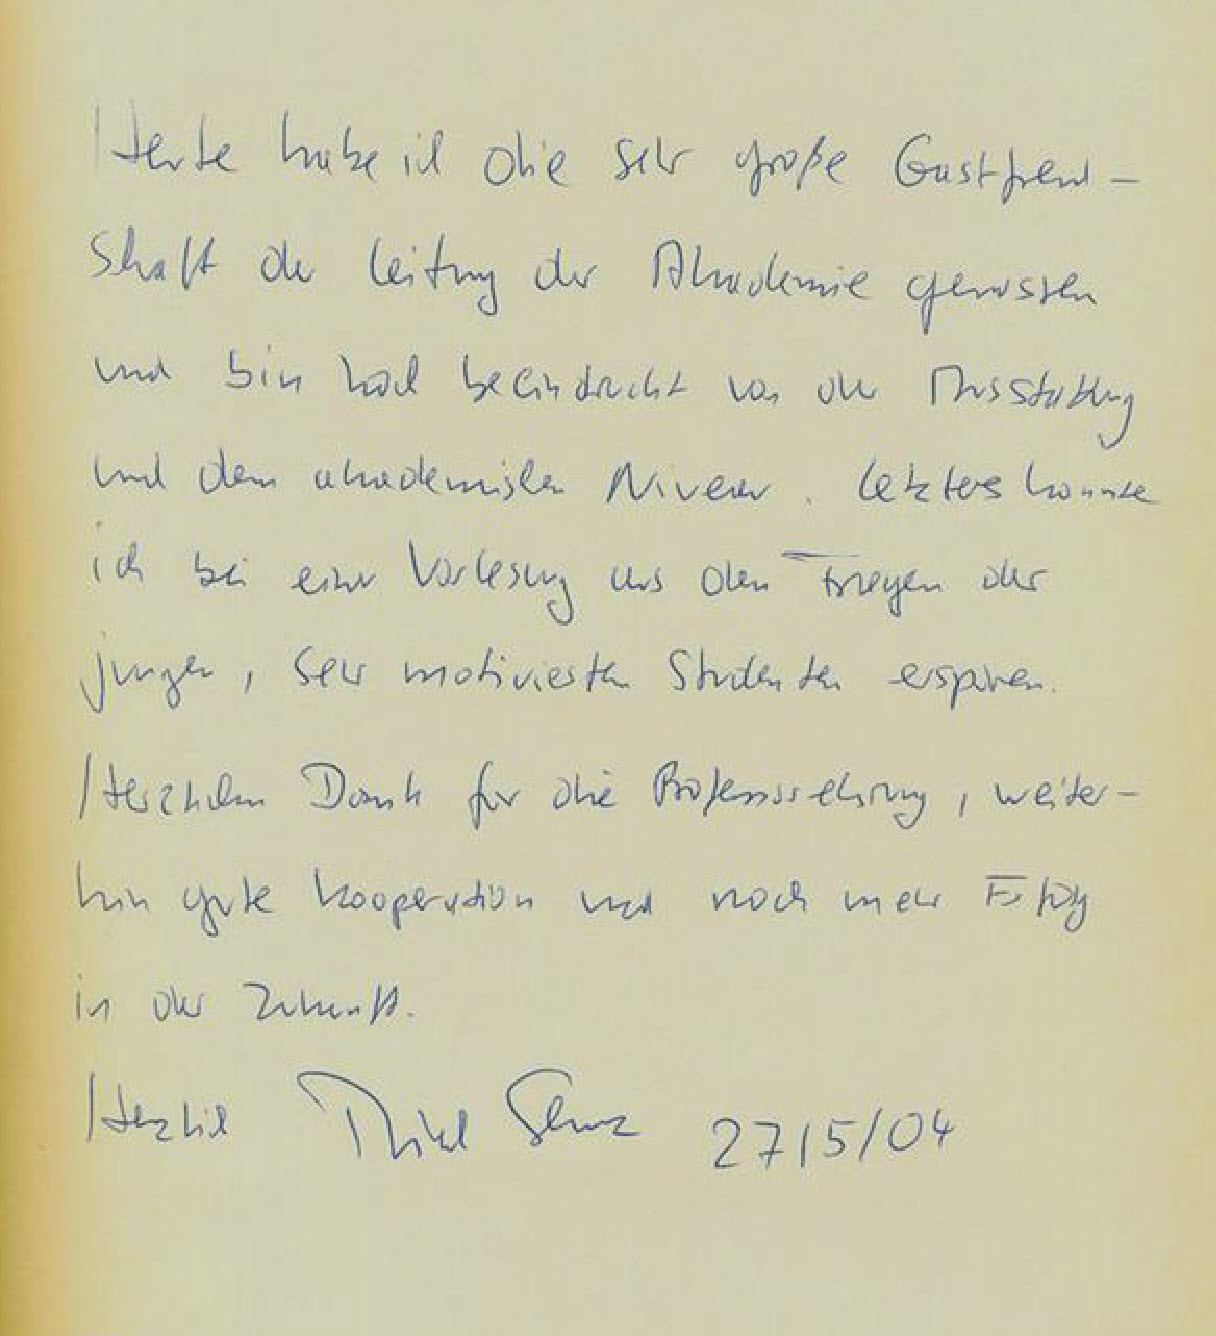 Heute habe ich die sehr große Gastfreund-
schaft der Leitung der Akademie genossen
und bin hoch beeindruckt von der Ausstattung
und dem akademischen Niveau. Letzteres konnte
ich bei einer Vorlesung aus den Fragen der
jungen, sehr motivierten Studenten erspüren.
Herzlichen Dank für die Professorehrung, weiter-
hin gute Kooperation und noch mehr Erfolg
in der Zukunft.
Herzlich 27/5/04